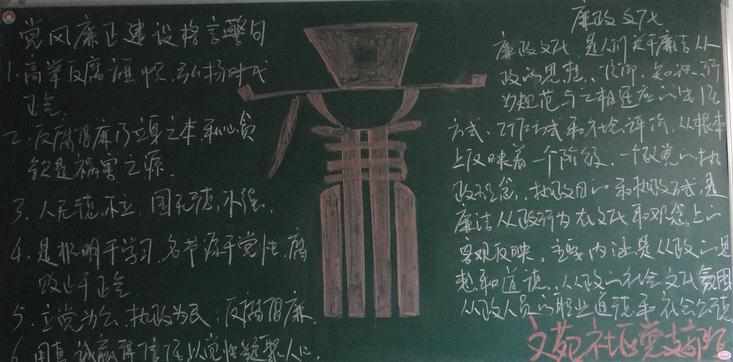 党风廉正建设格言警句
1.高举反腐旗帜，弘扬时代
正气
2、反腐倡廉乃立身之本，私心贪
欲是祸害之源.
3、人无德，不立，国无德，不强.
4、是非明于学习，名节源于党性，腐
败止于正气
5、立党为公，执政为民，反腐倡廉.
6、用真诚赢得信任，以党性凝聚人心.
廉政文化
廉政文化，是人们关于廉洁从
政的思想、信仰、知识、行
为规范与之相适应的生活
方式、工作方式和社会评价，从根本
上反映着一个阶级、一个政党的执
政理念、执政目的和执政方式，是
廉洁从政行为在文化和观念上的
客观反映，主要内涵是从政的思
想和道德、从政的社会文化氛围
从政人员的职业道德和社会公德
文苑社区党支部